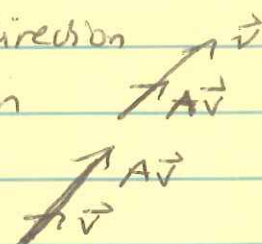 direction v⃗
n Av⃗
Av⃗
v⃗